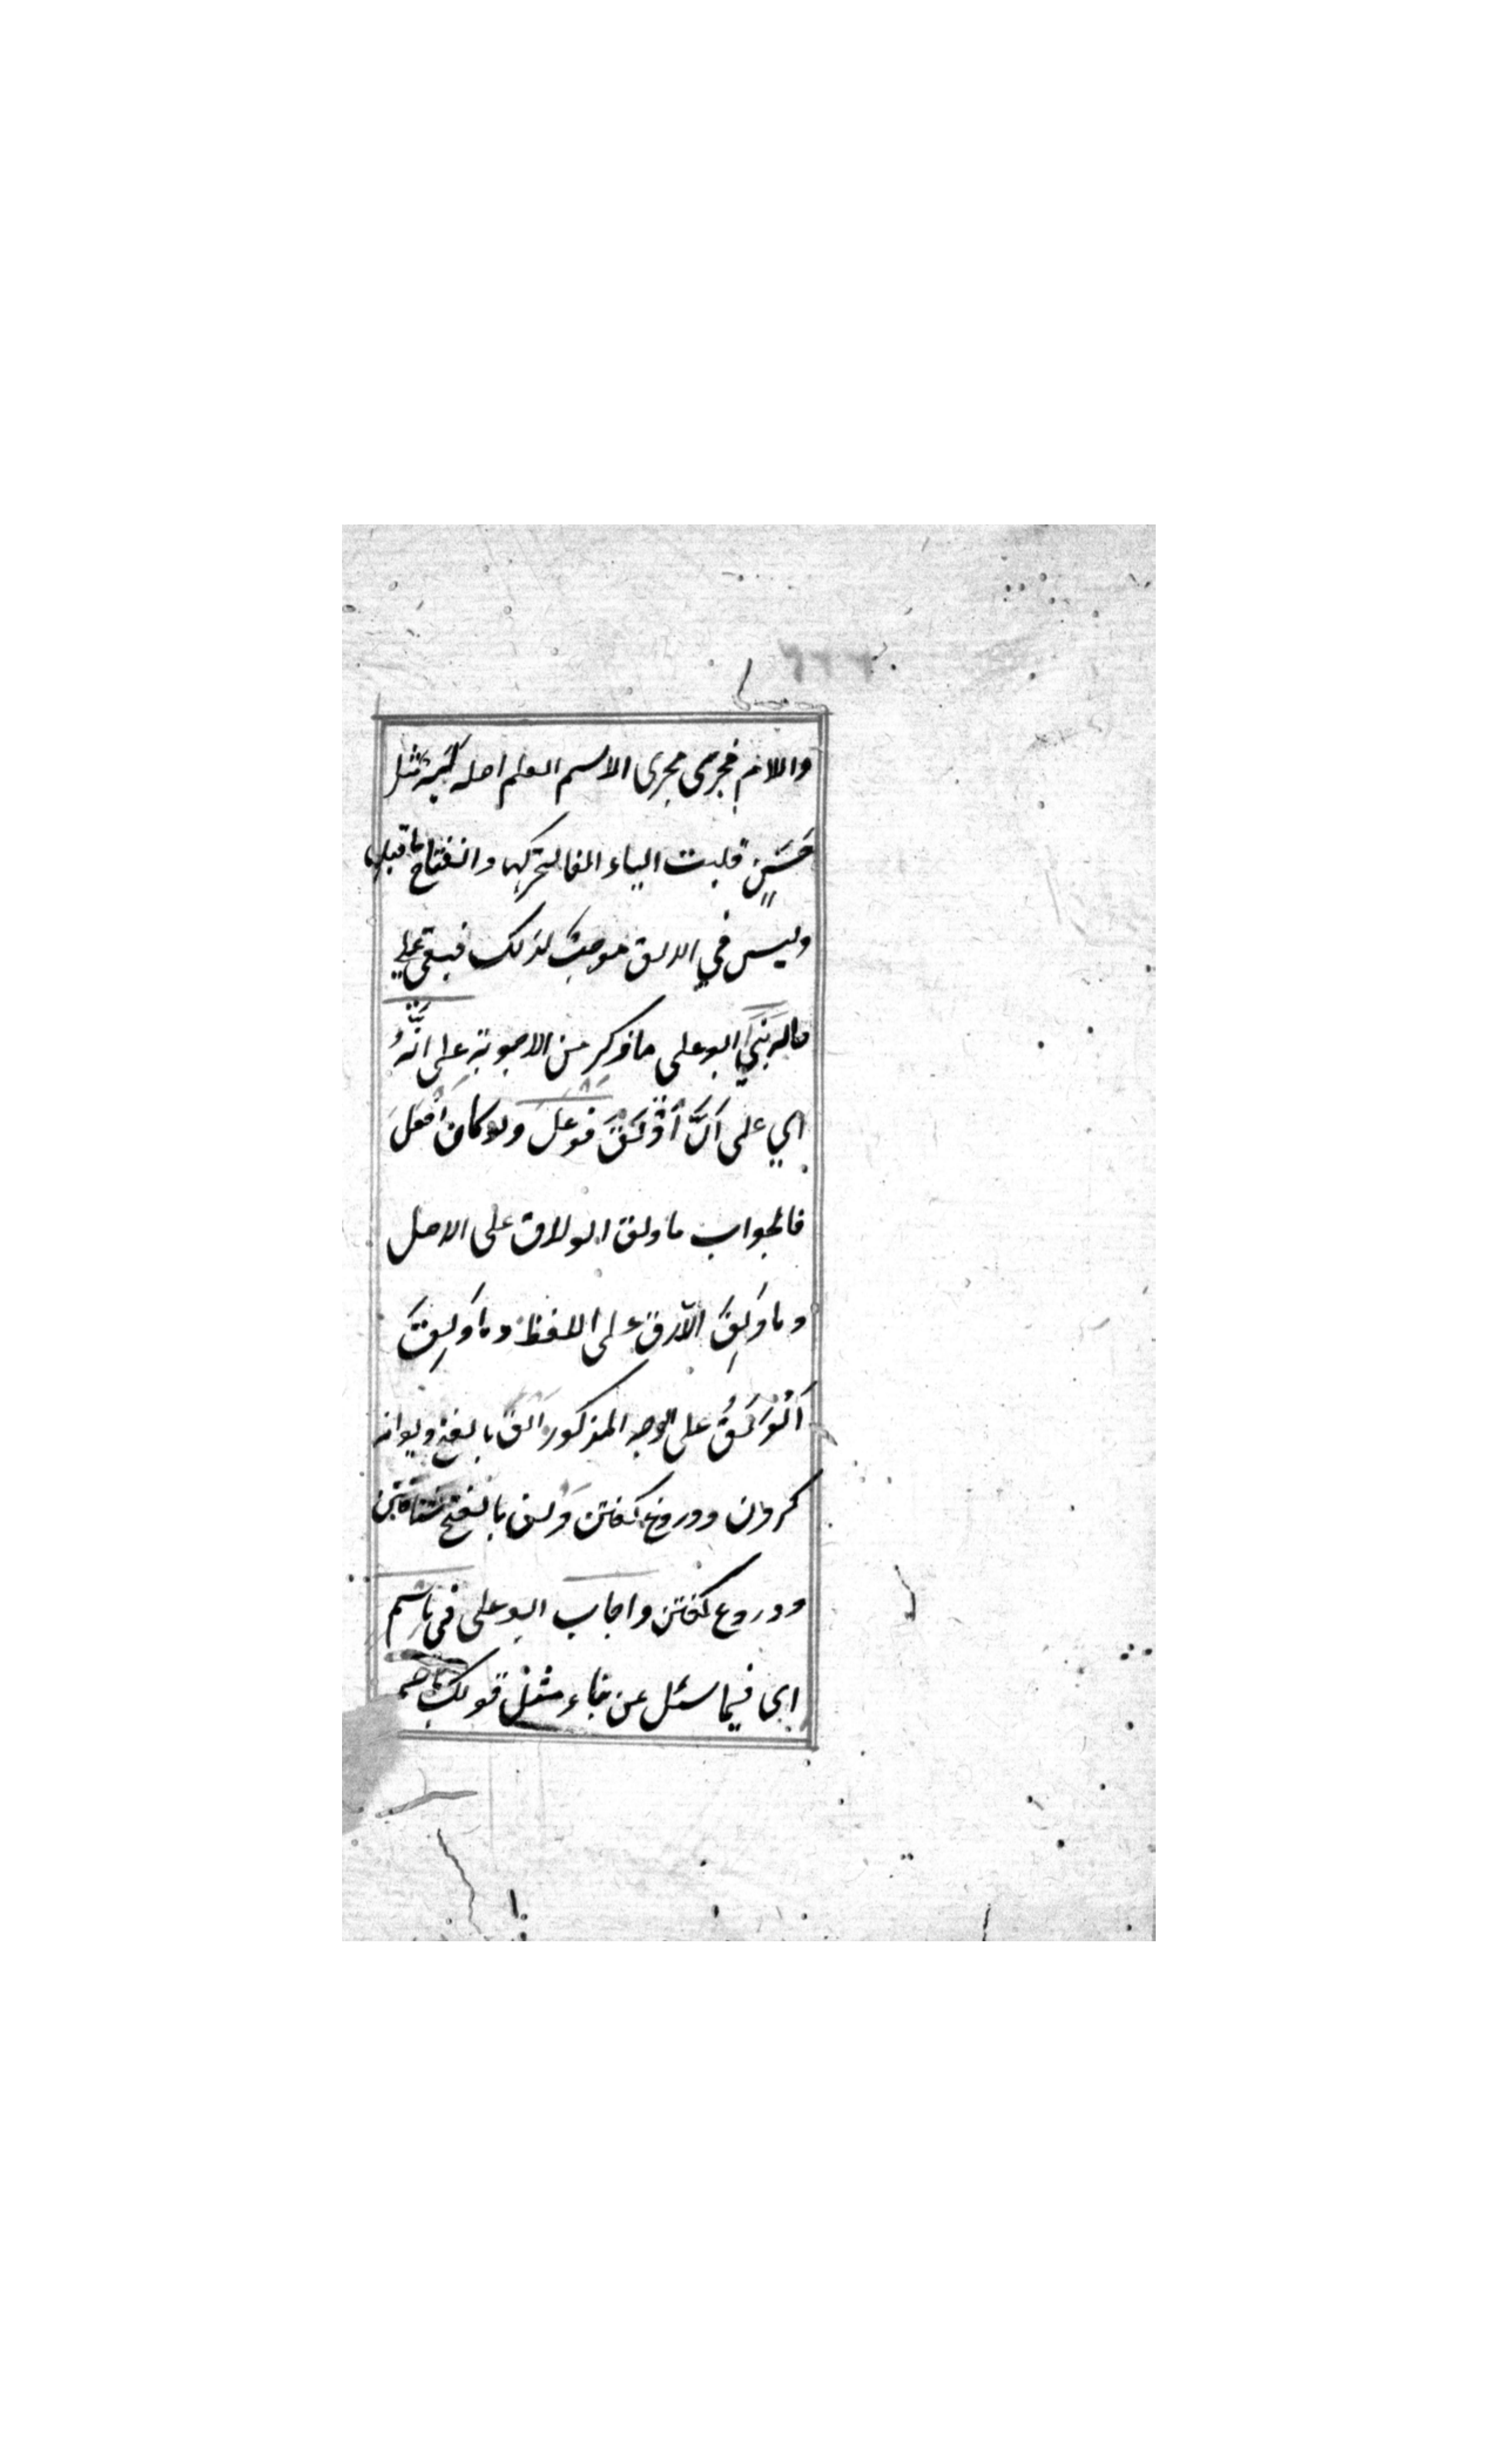 واللام فجرى مجرى الاسم العلم اصله لَيَهٌ مثل
حَسَنٍ قلبت الياء الفا لتحركها وانفتاح ما قبلها
وليس في الالق موجبٌ لذلك فبقى على
حاله بَنَى ابو على ما ذكر من الاجوبة على انَّهُ
اي على انَّ اَوْلَقَ فَوْعَلَ ولو كان اَفْعَلَ
فالجواب ما ولق الولاق على الاصل
وما وَلِقَ الاَّلاق على اللفظ وما وَلِقَ
اَلْوَلَقُ على الوجه المذكور الق بالفتح ديوانه
كردن ودروغ گفتن وَلق بالفتح شتافتن
ودروغ گفتن واجاب ابو على في باسم
اى فيما سئل عن بناء مثل قولك باسم